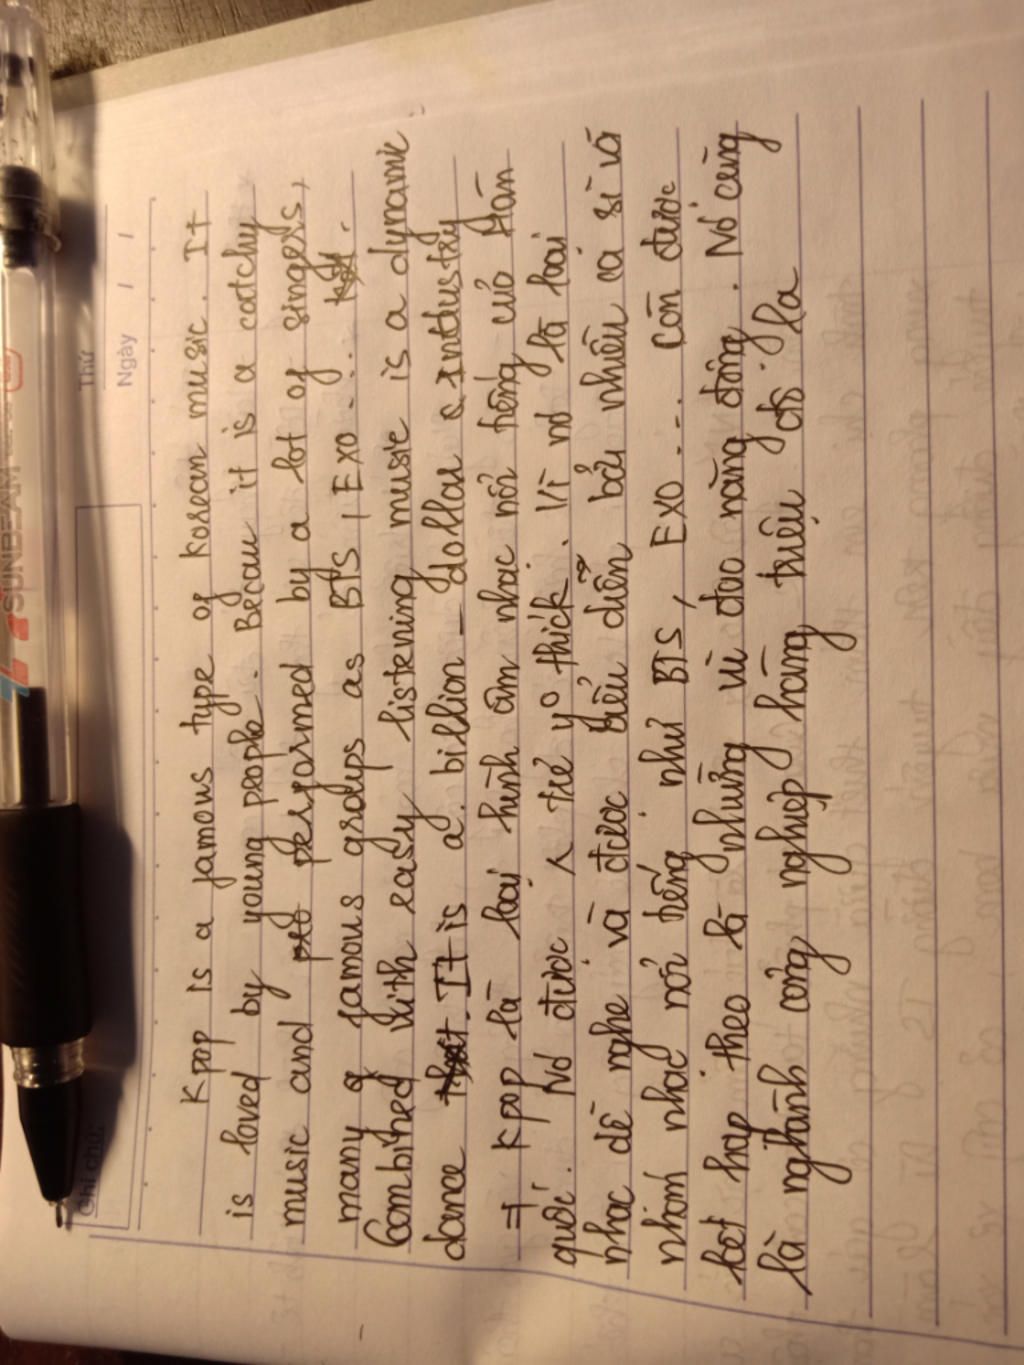 SUNBEAM
Thứ
Ngày / /
Ghi chú:
Kpop is a famous type of Korean music. It
is loved by young people. Becau it is a catchy
music and performed by a lot of singers,
many of famous groups as BTS, EXO...
Combined with easy listening music is a dynamic
dance. It is a billion - dollar industry
=> Kpop là loại hình âm nhạc nổi tiếng của Hàn
quốc. Nó được trẻ thích. Vì nó là loại
nhạc dễ nghe và được biểu diễn bởi nhiều ca sĩ và
nhóm nhạc nổi tiếng như BTS, EXO.... Còn được
kết hợp theo là những vũ đạo năng động. Nó cũng
là nghành công nghiệp hàng triệu đô la